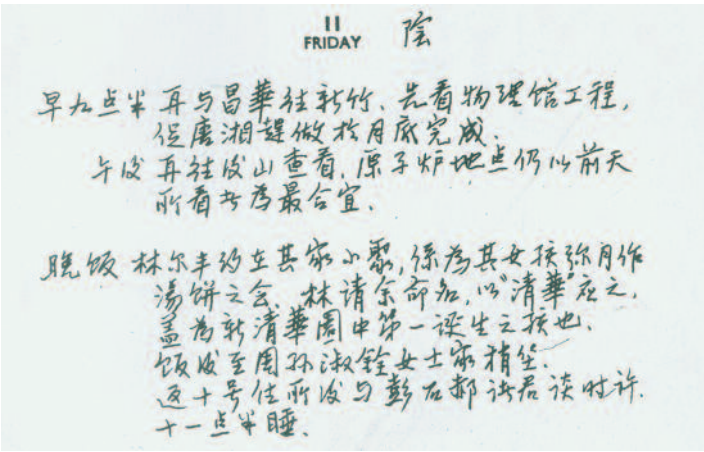 11
FRIDAY 陰
早九点半 再与昌華往新竹. 先看物理馆工程,
促唐湘趕做於月底完成.
午後 再往後山查看, 原子炉地点仍以前天
所看步為最合宜.
晚饭 林尔丰约在其家小聚, 係為其女孩弥月作
湯餅之会. 林请余命名, 以"清華"应之,
盖為新清華園中第一诞生之孩也.
饭後至周孙淑銓女士家稍坐.
返十号住所後与彭石郝诸君谈时许.
十一点半睡.